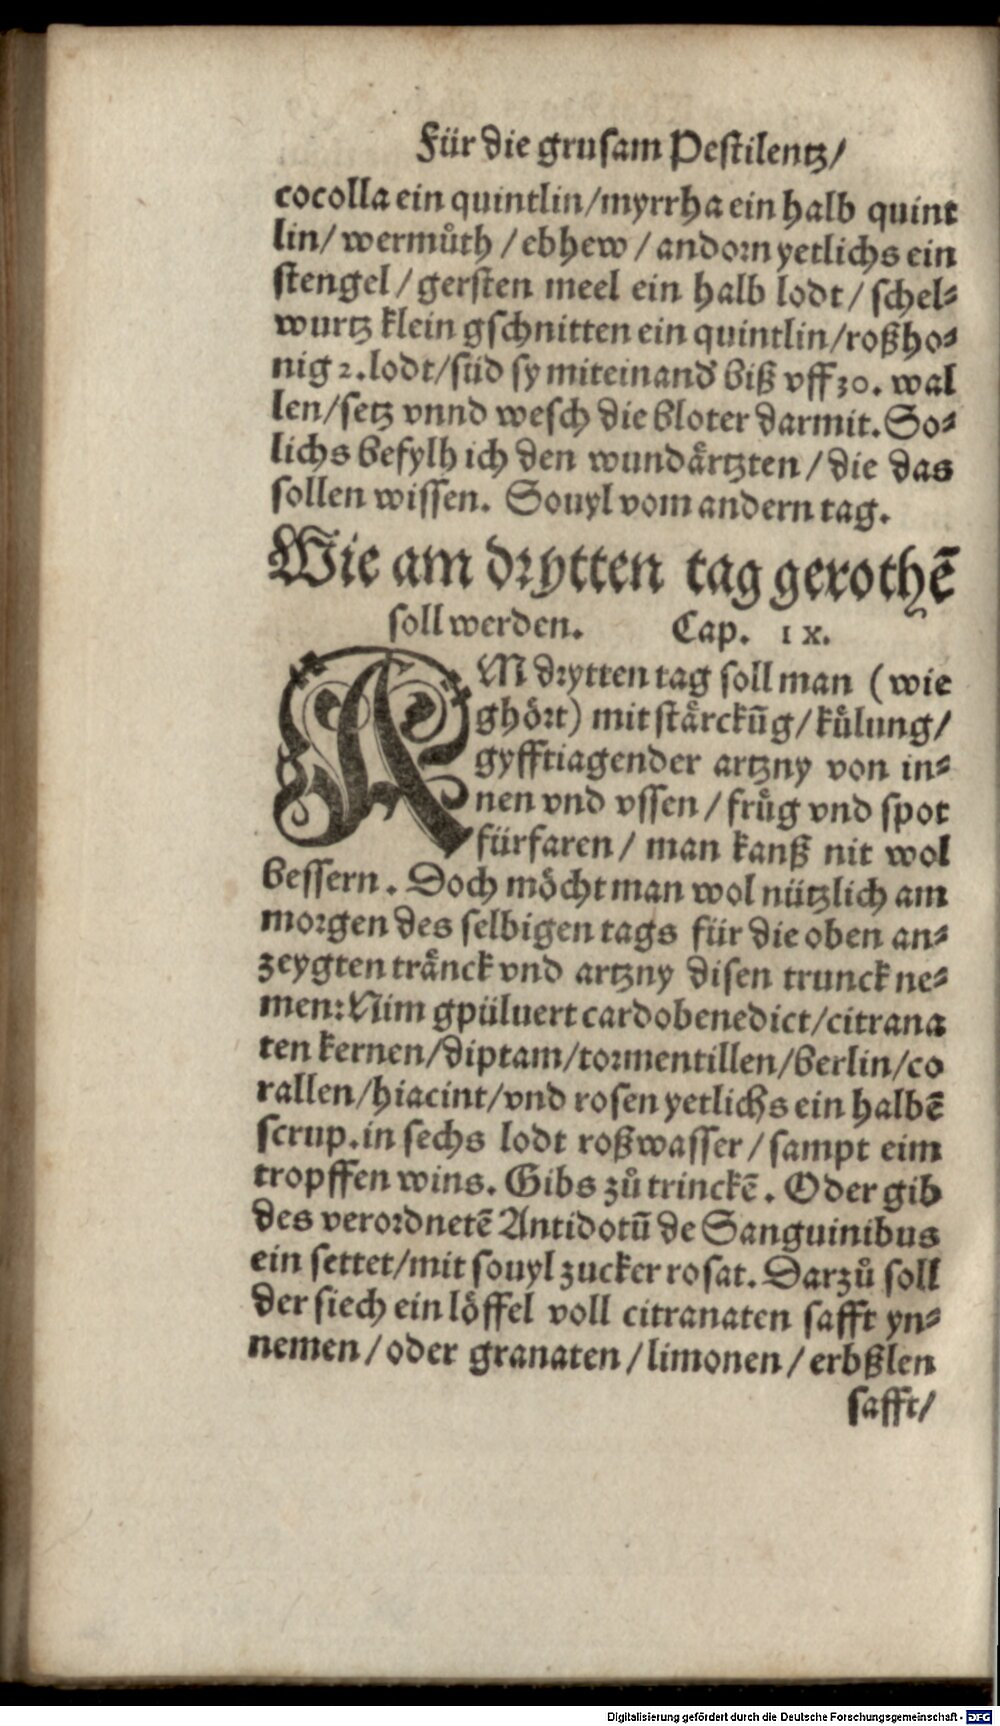 Für die grusam Pestilentz/
cocolla ein quintlin/myrrha ein halb quint
lin/ wermůth / ebhew / andorn yetlichs ein
stengel / gersten meel ein halb lodt / schel⸗
wurtz klein gschnitten ein quintlin/roßho⸗
nig 2.lodt/süd sy miteinand biß vff 30. wal
len/setz vnnd wesch die bloter darmit. So⸗
lichs befylh ich den wundaͤrtzten / die das
sollen wissen. Souyl vom andern tag.
Wie am drytten tag gerothē
soll werden. Cap. IX.
AM drytten tag soll man (wie
ghoͤrt) mit staͤrckūg/kuͤlung/
gyfftiagender artzny von in⸗
nen vnd vssen / fruͤg vnd spot
fürfaren / man kanß nit wol
bessern. Doch moͤcht man wol nützlich am
morgen des selbigen tags für die oben an⸗
zeygten traͤnck vnd artzny disen trunck ne⸗
men: Nim gpüluert cardobenedict/citrana
ten kernen/diptam/tormentillen/berlin/co
rallen/hiacint/vnd rosen yetlichs ein halbē
scrup.in sechs lodt roßwasser / sampt eim
tropffen wins. Gibs zů trinckē. Oder gib
des verordnetē Antidotū de Sanguinibus
ein settet/mit souyl zucker rosat. Darzů soll
der siech ein loͤffel voll citranaten safft yn⸗
nemen / oder granaten / limonen / erbßlen
safft/
Digitalisierung gefördert durch die Deutsche Forschungsgemeinschaft - DFG